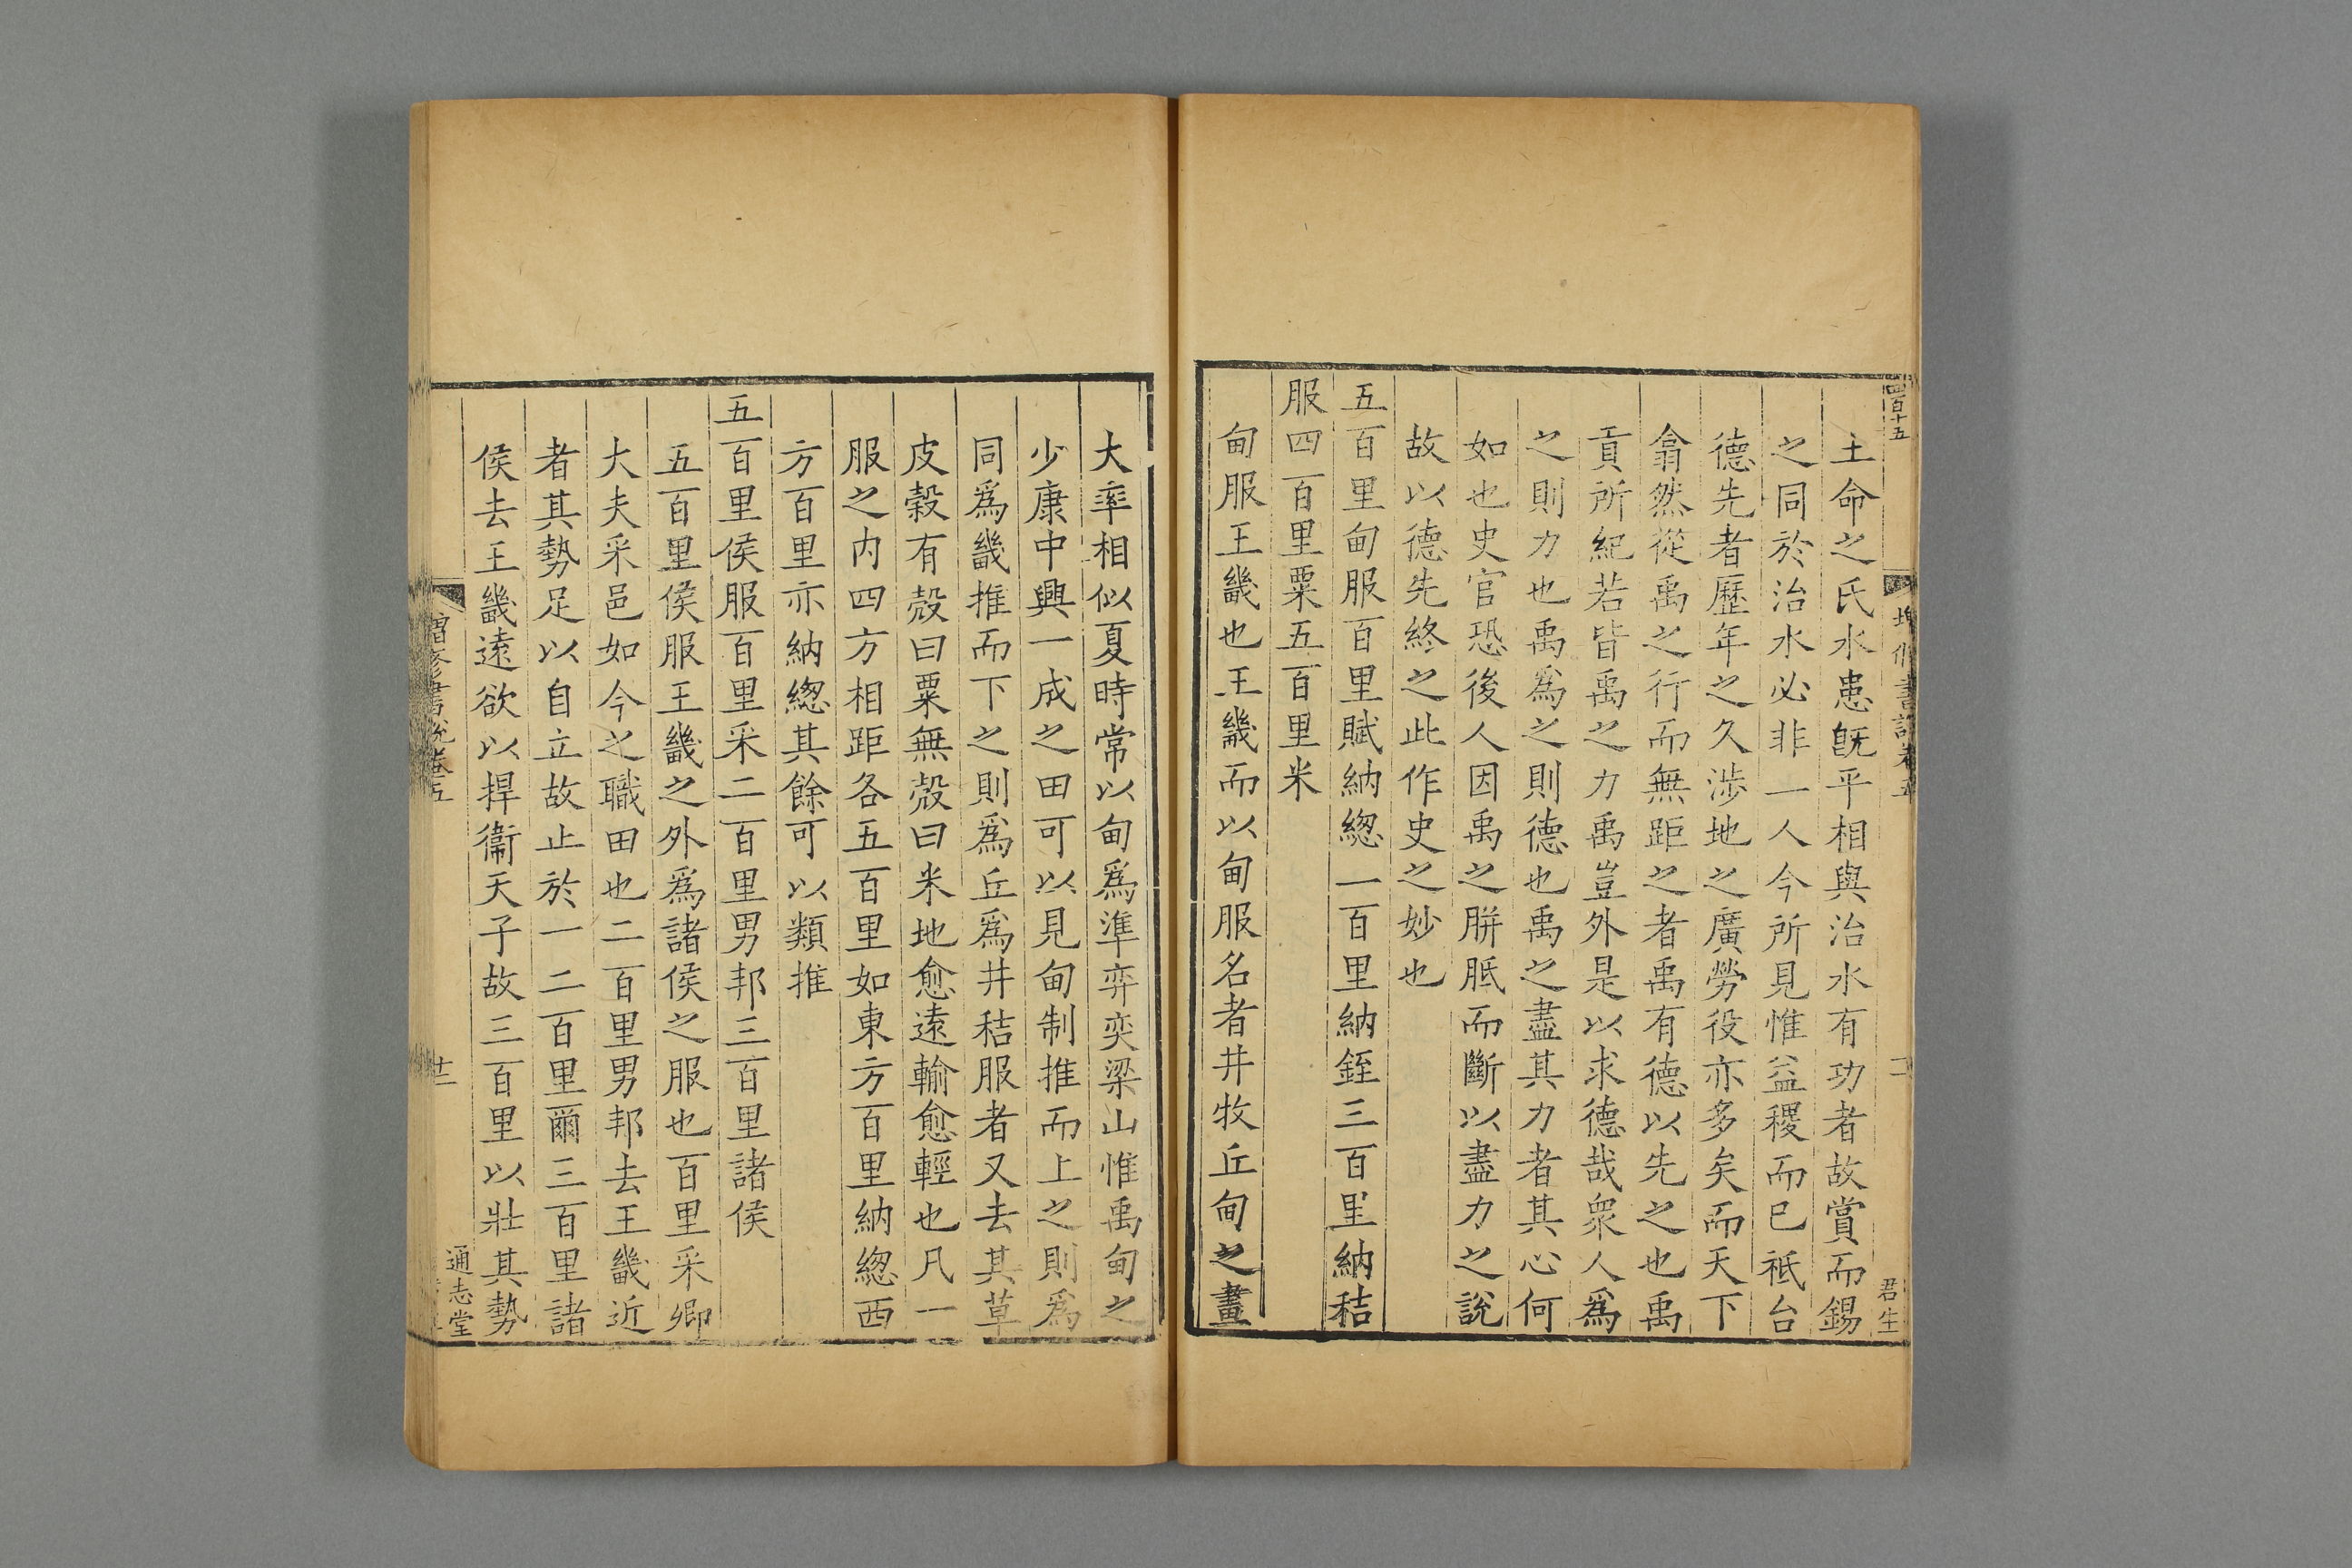 四百十五
君生
土命之氏水患旣平相與治水有功者故賞而錫
之同於治水必非一人今所見惟益稷而已祗台
德先者歷年之久渉地之廣勞役亦多矣而天下
翕然從禹之行而無距之者禹有德以先之也禹
貢所紀若皆禹之力禹豈外是以求德哉衆人爲
之則力也禹爲之則德也禹之盡其力者其心何
如也史官恐後人因禹之胼胝而斷以盡力之說
故以德先終之此作史之妙也
五百里甸服百里賦納緫一百里納銍三百里納秸
服四百里粟五百里米
甸服王畿也王畿而以甸服名者井牧丘甸之畫
大率相似夏時常以甸爲準弈弈梁山惟禹甸之
少康中興一成之田可以見甸制推而上之則爲
同爲畿推而下之則爲丘爲井秸服者又去其草
皮穀有殼曰粟無殼曰米地愈遠輸愈輕也凡一
服之內四方相距各五百里如東方百里納緫西
方百里亦納緫其餘可以類推
五百里侯服百里采二百里男邦三百里諸侯
五百里侯服王畿之外爲諸侯之服也百里采卿
大夫采邑如今之職田也二百里男邦去王畿近
者其勢足以自立故止於一二百里爾三百里諸
侯去王畿遠欲以捍衞天子故三百里以壯其勢
增修書說卷五
通志堂